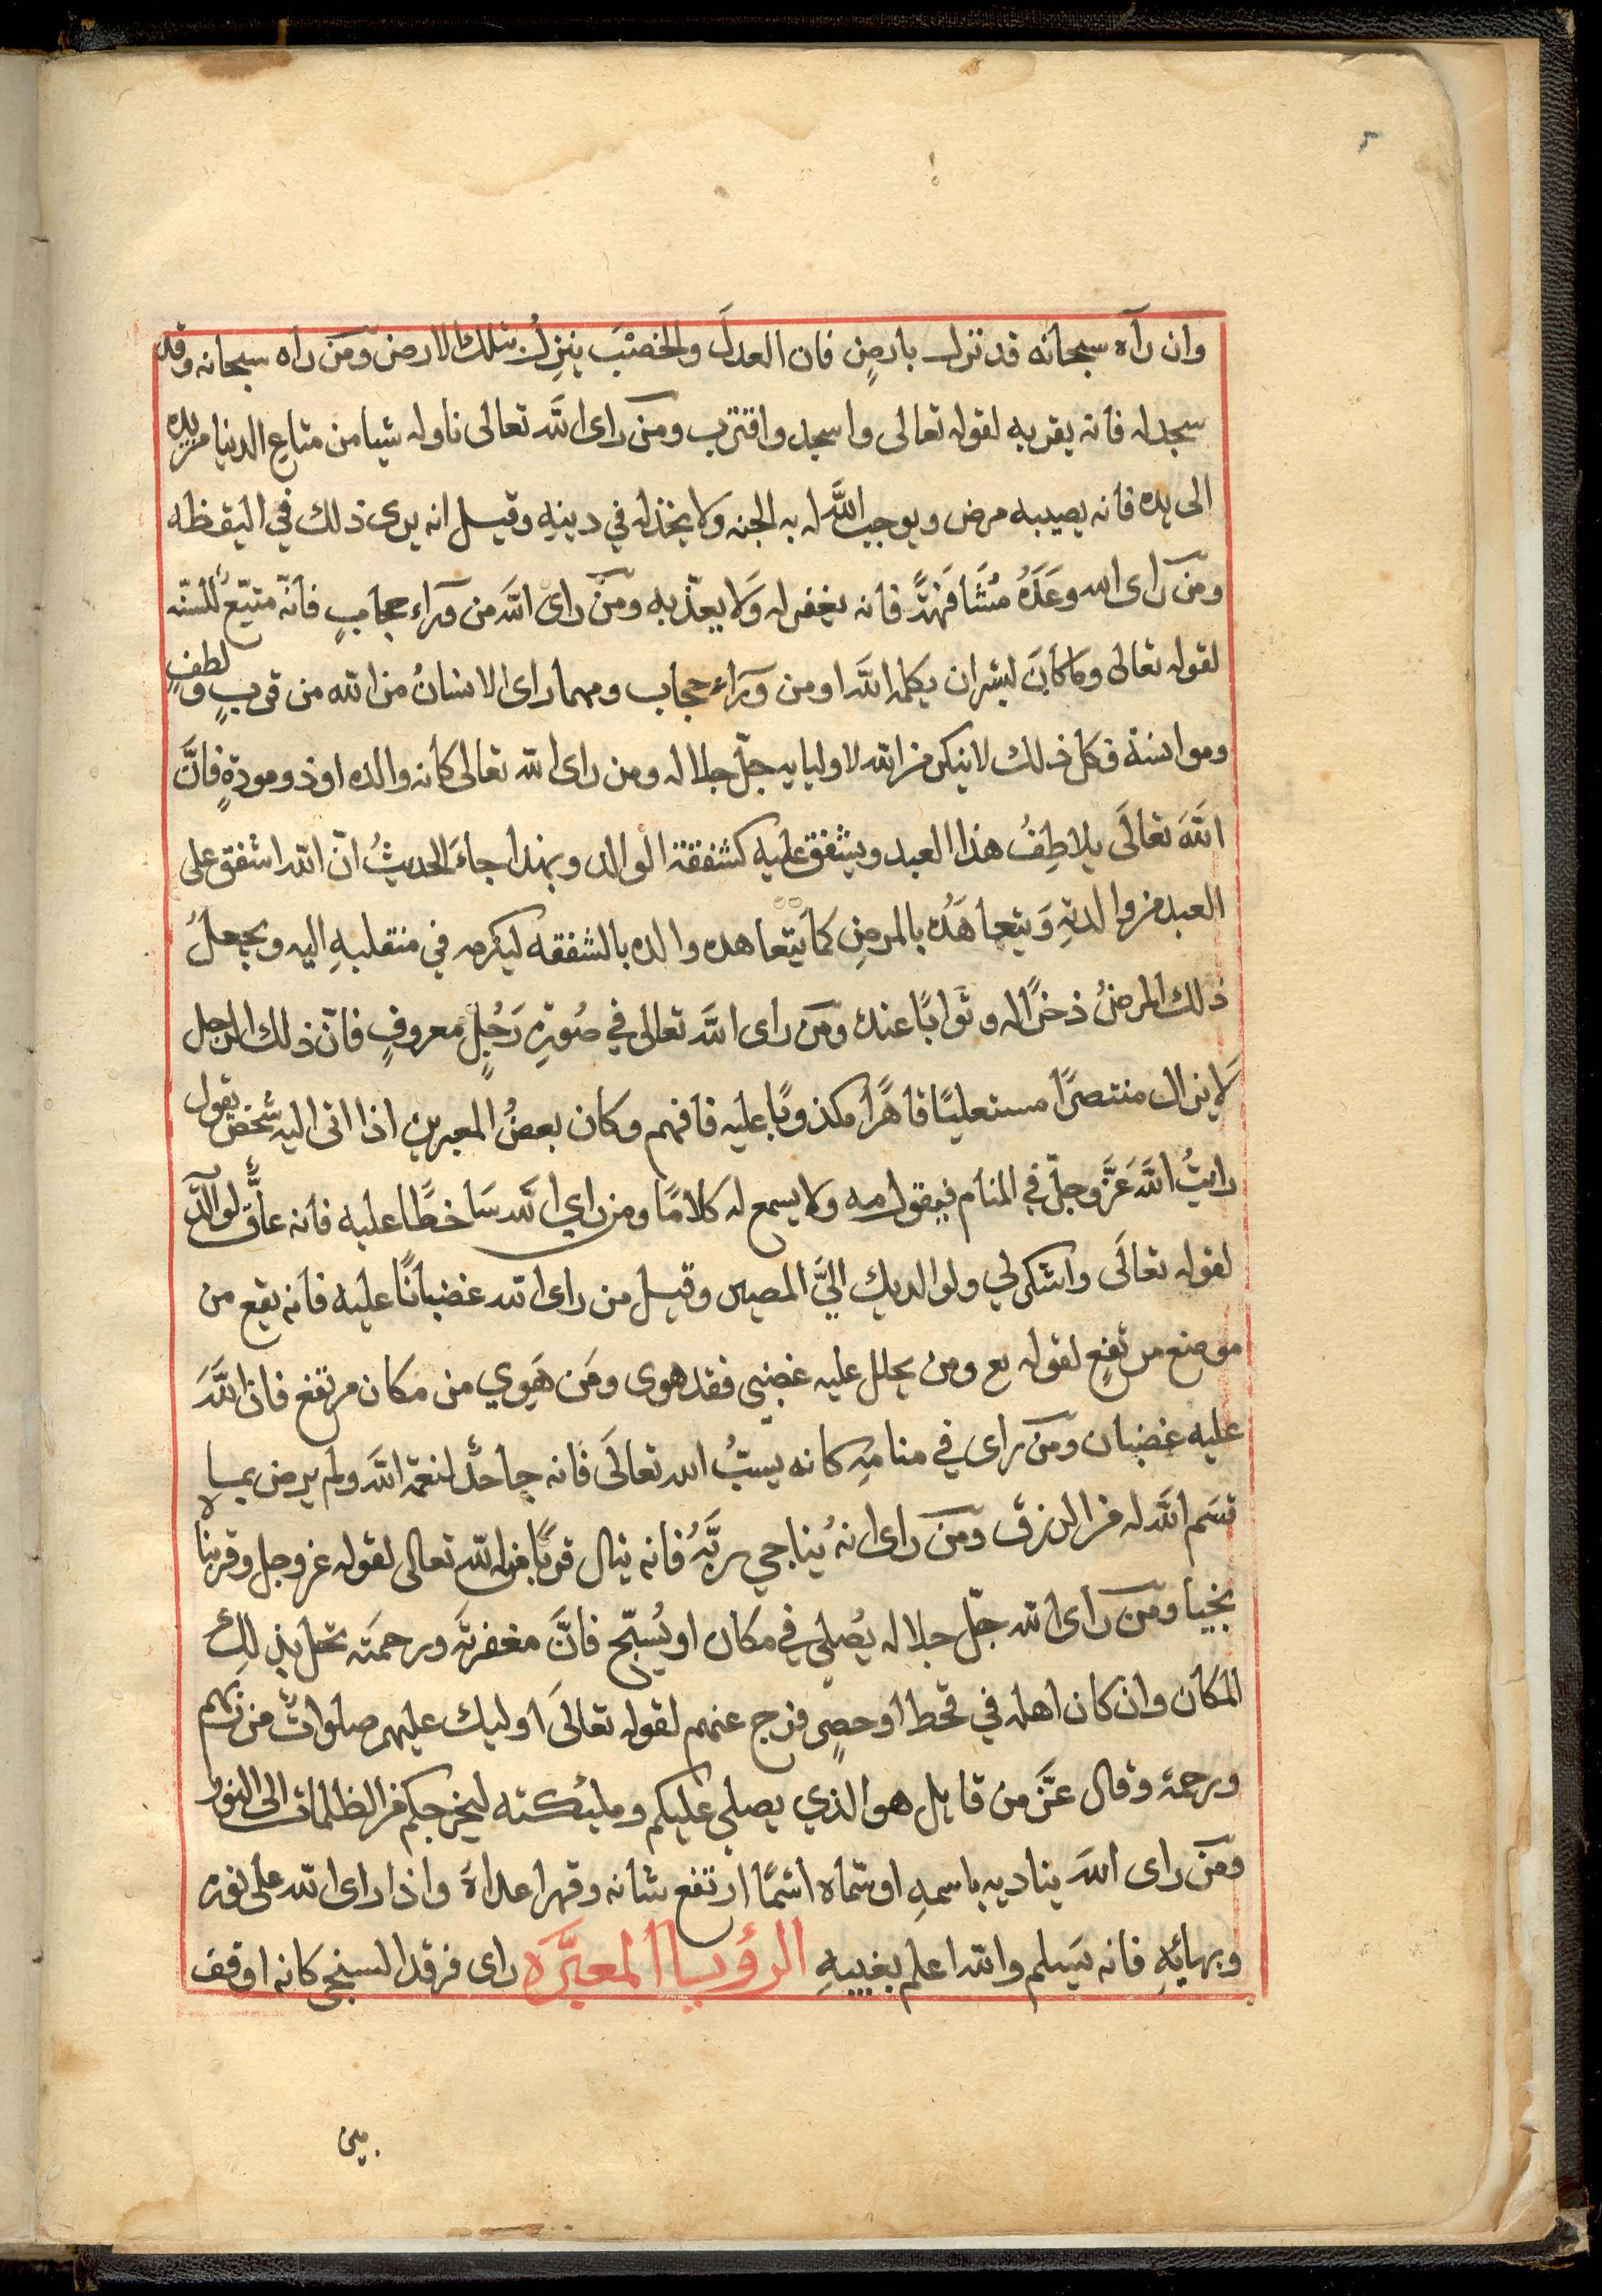 وان رآه سبحانه قد نزل بارضٍ فان العدلَ والخصْبَ ينزِلُ بتلك الارض ومَن راه سبحانه وقد
سجد له فانه يقربه لقوله تعالى واسجد واقترب ومَن راى اللّه تعالى ناوله شيا من متاعِ الدنيا مِن يده
الى يده فانه يصيبه مرض ويوجب اللّه له به الجنه ولا يخذله في دينهِ وقيل انه يرى ذلك في اليقظه
ومَن راى الله وعَدَهُ مُشَافَهةً فانه يغفر له وَلا يعذّبه ومَن راى اللّه من وَراء حجابٍ فانّه متبّعٌ للسنّه
لقوله تعالى وماكانَ لبشر ان يكلمه اللّه او من وَرَاء حجاب ومهما راى الانسانُ من الله من قربٍ ولطفٍ
وموانسة فكل ذلك لا ينكر من الله لاوليايه جلّ جلاله ومن راى الله تعالى كانه والده او ذو مودةٍ فانَّ
اللّه تعالَى يلاطِفُ هذا العبد ويشفق عليه كشفقة الوالد وبهذا جاءَ الحديثُ انّ اللّه اشفق على
العبد من والدتِهِ وَيتعاهَدُه بالمرضِ كما يتعاهده والده بالشفقه ليكرمه في منقلبهِ اليه ويجعلُ
ذلك المرضُ ذخرًا له وثوابًا عنده ومَن راى اللّه تعالى في صُورةِ رَجُلٍ معروفٍ فانّ ذلك الرجل
لا يزال منتصرًا مستعليًا قاهرًا مكذوبًا عليه فافهم وكان بعضُ المعبرين اذا اتى اليه شخصٌ يقول
رايتُ اللّه عَزّوجلّ في المنام فيقول مه ولا يسمع له كلامًا ومن راي اللّه سَاخطًا عليه فانه عاقٌّ لوالديه
لقوله تعالَى واشكر لي ولوالديك اليَّ المصير وقيل من راى الله غضبانًا عليه فانه يقع من
موضع مرتفعٍ لقوله تع ومن يحلل عليه غضبي فقد هوى ومَن هَوي من مكان مرتفع فان اللّهَ
عليه غضبان ومَن راى في منامهِ كانه يسبُّ الله تعالَى فانه جاحدٌ لنعمة اللّه ولم يرض بما
قسَم اللّه له من الرزق ومَن راى انهُ يُناجي ربَّهُ فانه ينال قربًا من اللّه تعالى لقوله عز وجل وقربناه
نجيا ومَن راى الله جلّ جلاله يُصلي في مكان او يُسبّح فانَّ مغفرته ورحمَته تحل بذلك
المكان وان كان اهله في قحط او حصرٍ فرج عنهم لقوله تعالَى اوليك عليهم صلواتٌ من ربهم
ورحمة وقال عزَّ من قايل هو الذي يصلي عليكم ومليكته ليخرجكم من الظلمات الى النور
ومَن راى اللّه يناديه باسمهِ او سَمّاه اسْمًا ارتفع شانه وقهر اعداه واذا راى اللّه على نوره
وبهائِهِ فانه يَسلم واللّه اعلم بغيبهِ الرؤيا المعبَّره راى فرقد السبخي كانه اوقف
بين